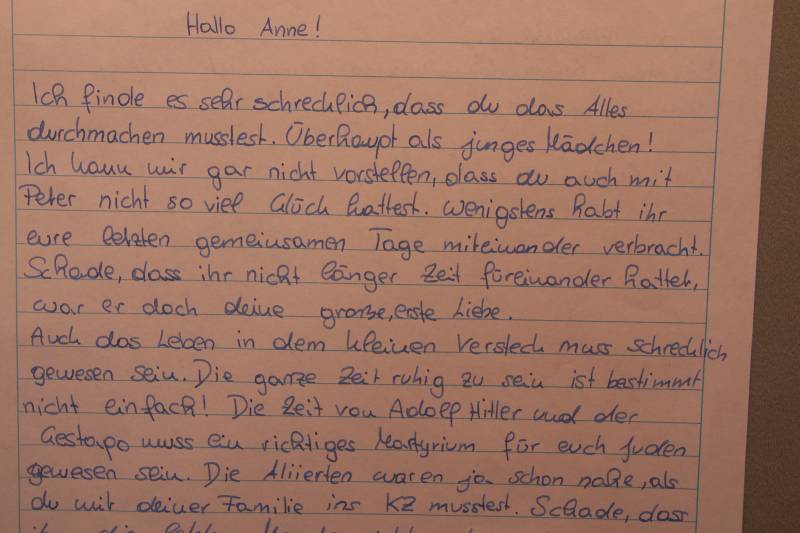 Hallo Anne!
Ich finde es sehr schrecklich, dass du das Alles
durchmachen musstest. Überhaupt als junges Mädchen!
Ich kann mir gar nicht vorstellen, dass du auch mit
Peter nicht so viel Glück hattest. Wenigstens habt ihr
eure letzten gemeinsamen Tage miteinander verbracht.
Schade, dass ihr nicht länger Zeit füreinander hattet,
war er doch deine große, erste Liebe.
Auch das Leben in dem kleinen Versteck muss schrecklich
gewesen sein. Die ganze Zeit ruhig zu sein ist bestimmt
nicht einfach! Die Zeit von Adolf Hitler und der
Gestapo muss ein richtiges Martyrium für euch Juden
gewesen sein. Die Aliierten waren ja schon nahe, als
du mit deiner Familie ins KZ musstest. Schade, dass